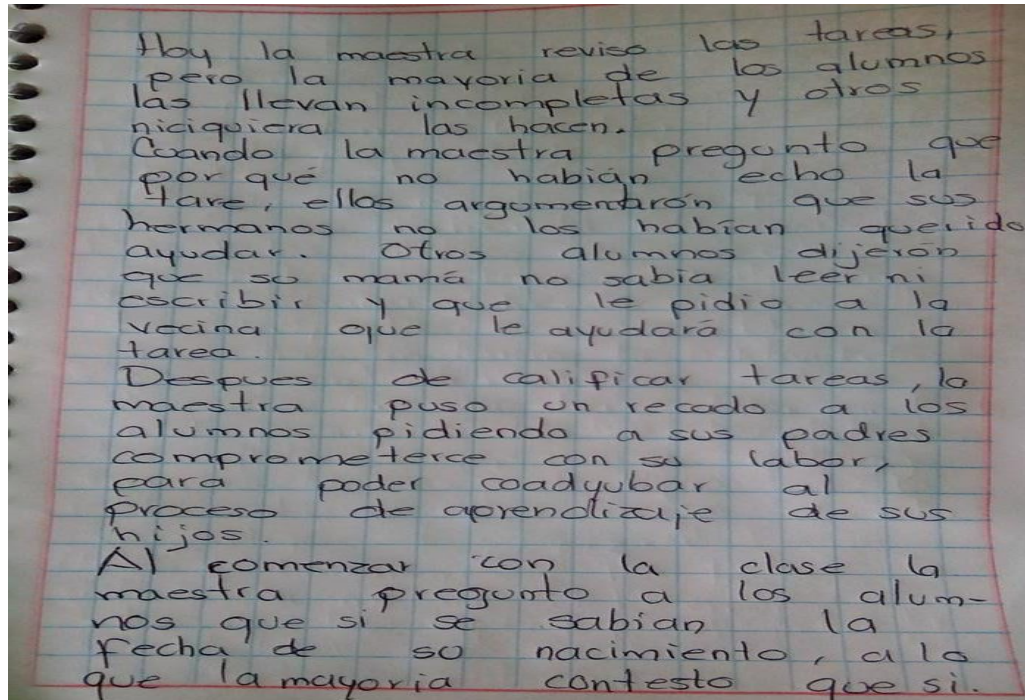 Hoy la maestra reviso las tareas,
pero la mayoria de los alumnos
las llevan incompletas y otros
niciquiera las hacen.
Cuando la maestra pregunto que
por qué no habián echo la
tare, ellos argumentarón que sus
hermanos no los habían querido
ayudar. Otros alumnos dijerón
que su mamá no sabia leer ni
escribir y que le pidio a la
vecina que le ayudará con la
tarea.
Despues de calificar tareas, la
maestra puso un recado a los
alumnos pidiendo a sus padres
comprometerce con su labor,
para poder coadyubar al
proceso de aprendizaje de sus
hijos.
Al comenzar con la clase la
maestra pregunto a los alum-
nos que si se sabian la
fecha de su nacimiento, a lo
que la mayoria contesto que si.